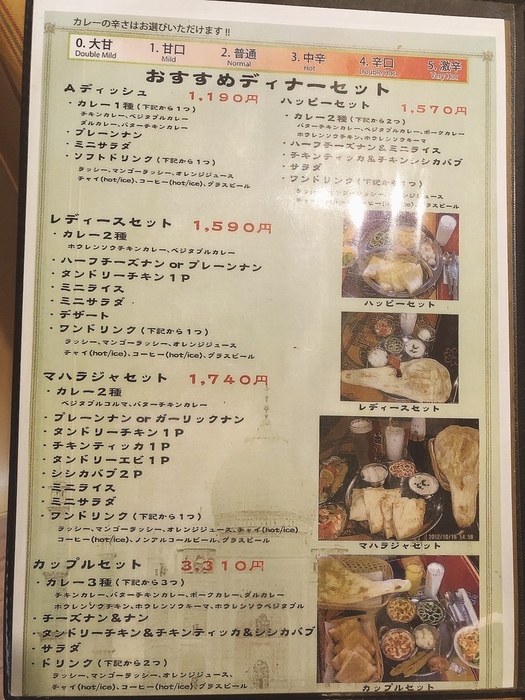 カレーの辛さはお選びいただけます!!
0. 大甘 1. 甘口 2. 普通 3. 中辛 4. 辛口 5. 激辛
Double Mild Mild Normal Hot Double Hot Very Hot
おすすめディナーセット
Aディッシュ 1,190円
・カレー1種(下記から1つ)
チキンカレー、ベジタブルカレー
ダルカレー、バターチキンカレー
・プレーンナン
・ミニサラダ
・ソフトドリンク(下記から1つ)
ラッシー、マンゴーラッシー、オレンジジュース
チャイ(hot/ice)、コーヒー(hot/ice)、グラスビール
ハッピーセット 1,570円
・カレー2種(下記から2つ)
バターチキンカレー、ベジタブルカレー、ポークカレー
ホウレンソウチキン、ホウレンソウキーマ
・ハーフチーズナン&ミニライス
・チキンティッカ&チキンシシカバブ
・サラダ
・ワンドリンク(下記から1つ)
ハッピーセット
レディースセット 1,590円
・カレー2種
ホウレンソウチキンカレー、ベジタブルカレー
・ハーフチーズナン or プレーンナン
・タンドリーチキン1P
・ミニライス
・ミニサラダ
・デザート
・ワンドリンク(下記から1つ)
ラッシー、マンゴーラッシー、オレンジジュース
チャイ(hot/ice)、コーヒー(hot/ice)、グラスビール
レディースセット
マハラジャセット 1,740円
・カレー2種
ベジタブルコルマ、バターチキンカレー
・プレーンナン or ガーリックナン
・タンドリーチキン1P
・チキンティッカ1P
・タンドリーエビ1P
・シシカバブ2P
・ミニライス
・ミニサラダ
・ワンドリンク(下記から1つ)
ラッシー、マンゴーラッシー、オレンジジュース、チャイ(hot/ice)
コーヒー(hot/ice)、ノンアルコールビール、グラスビール
2012/10/16 14:58
マハラジャセット
カップルセット 3,310円
・カレー3種(下記から3つ)
チキンカレー、バターチキンカレー、ポークカレー、ダルカレー
ホウレンソウチキン、ホウレンソウキーマ、ホウレンソウベジタブル
・チーズナン&ナン
・タンドリーチキン&チキンティッカ&シシカバブ
・サラダ
・ドリンク(下記から2つ)
ラッシー、マンゴーラッシー、オレンジジュース、
チャイ(hot/ice)、コーヒー(hot/ice)、グラスビール
カップルセット